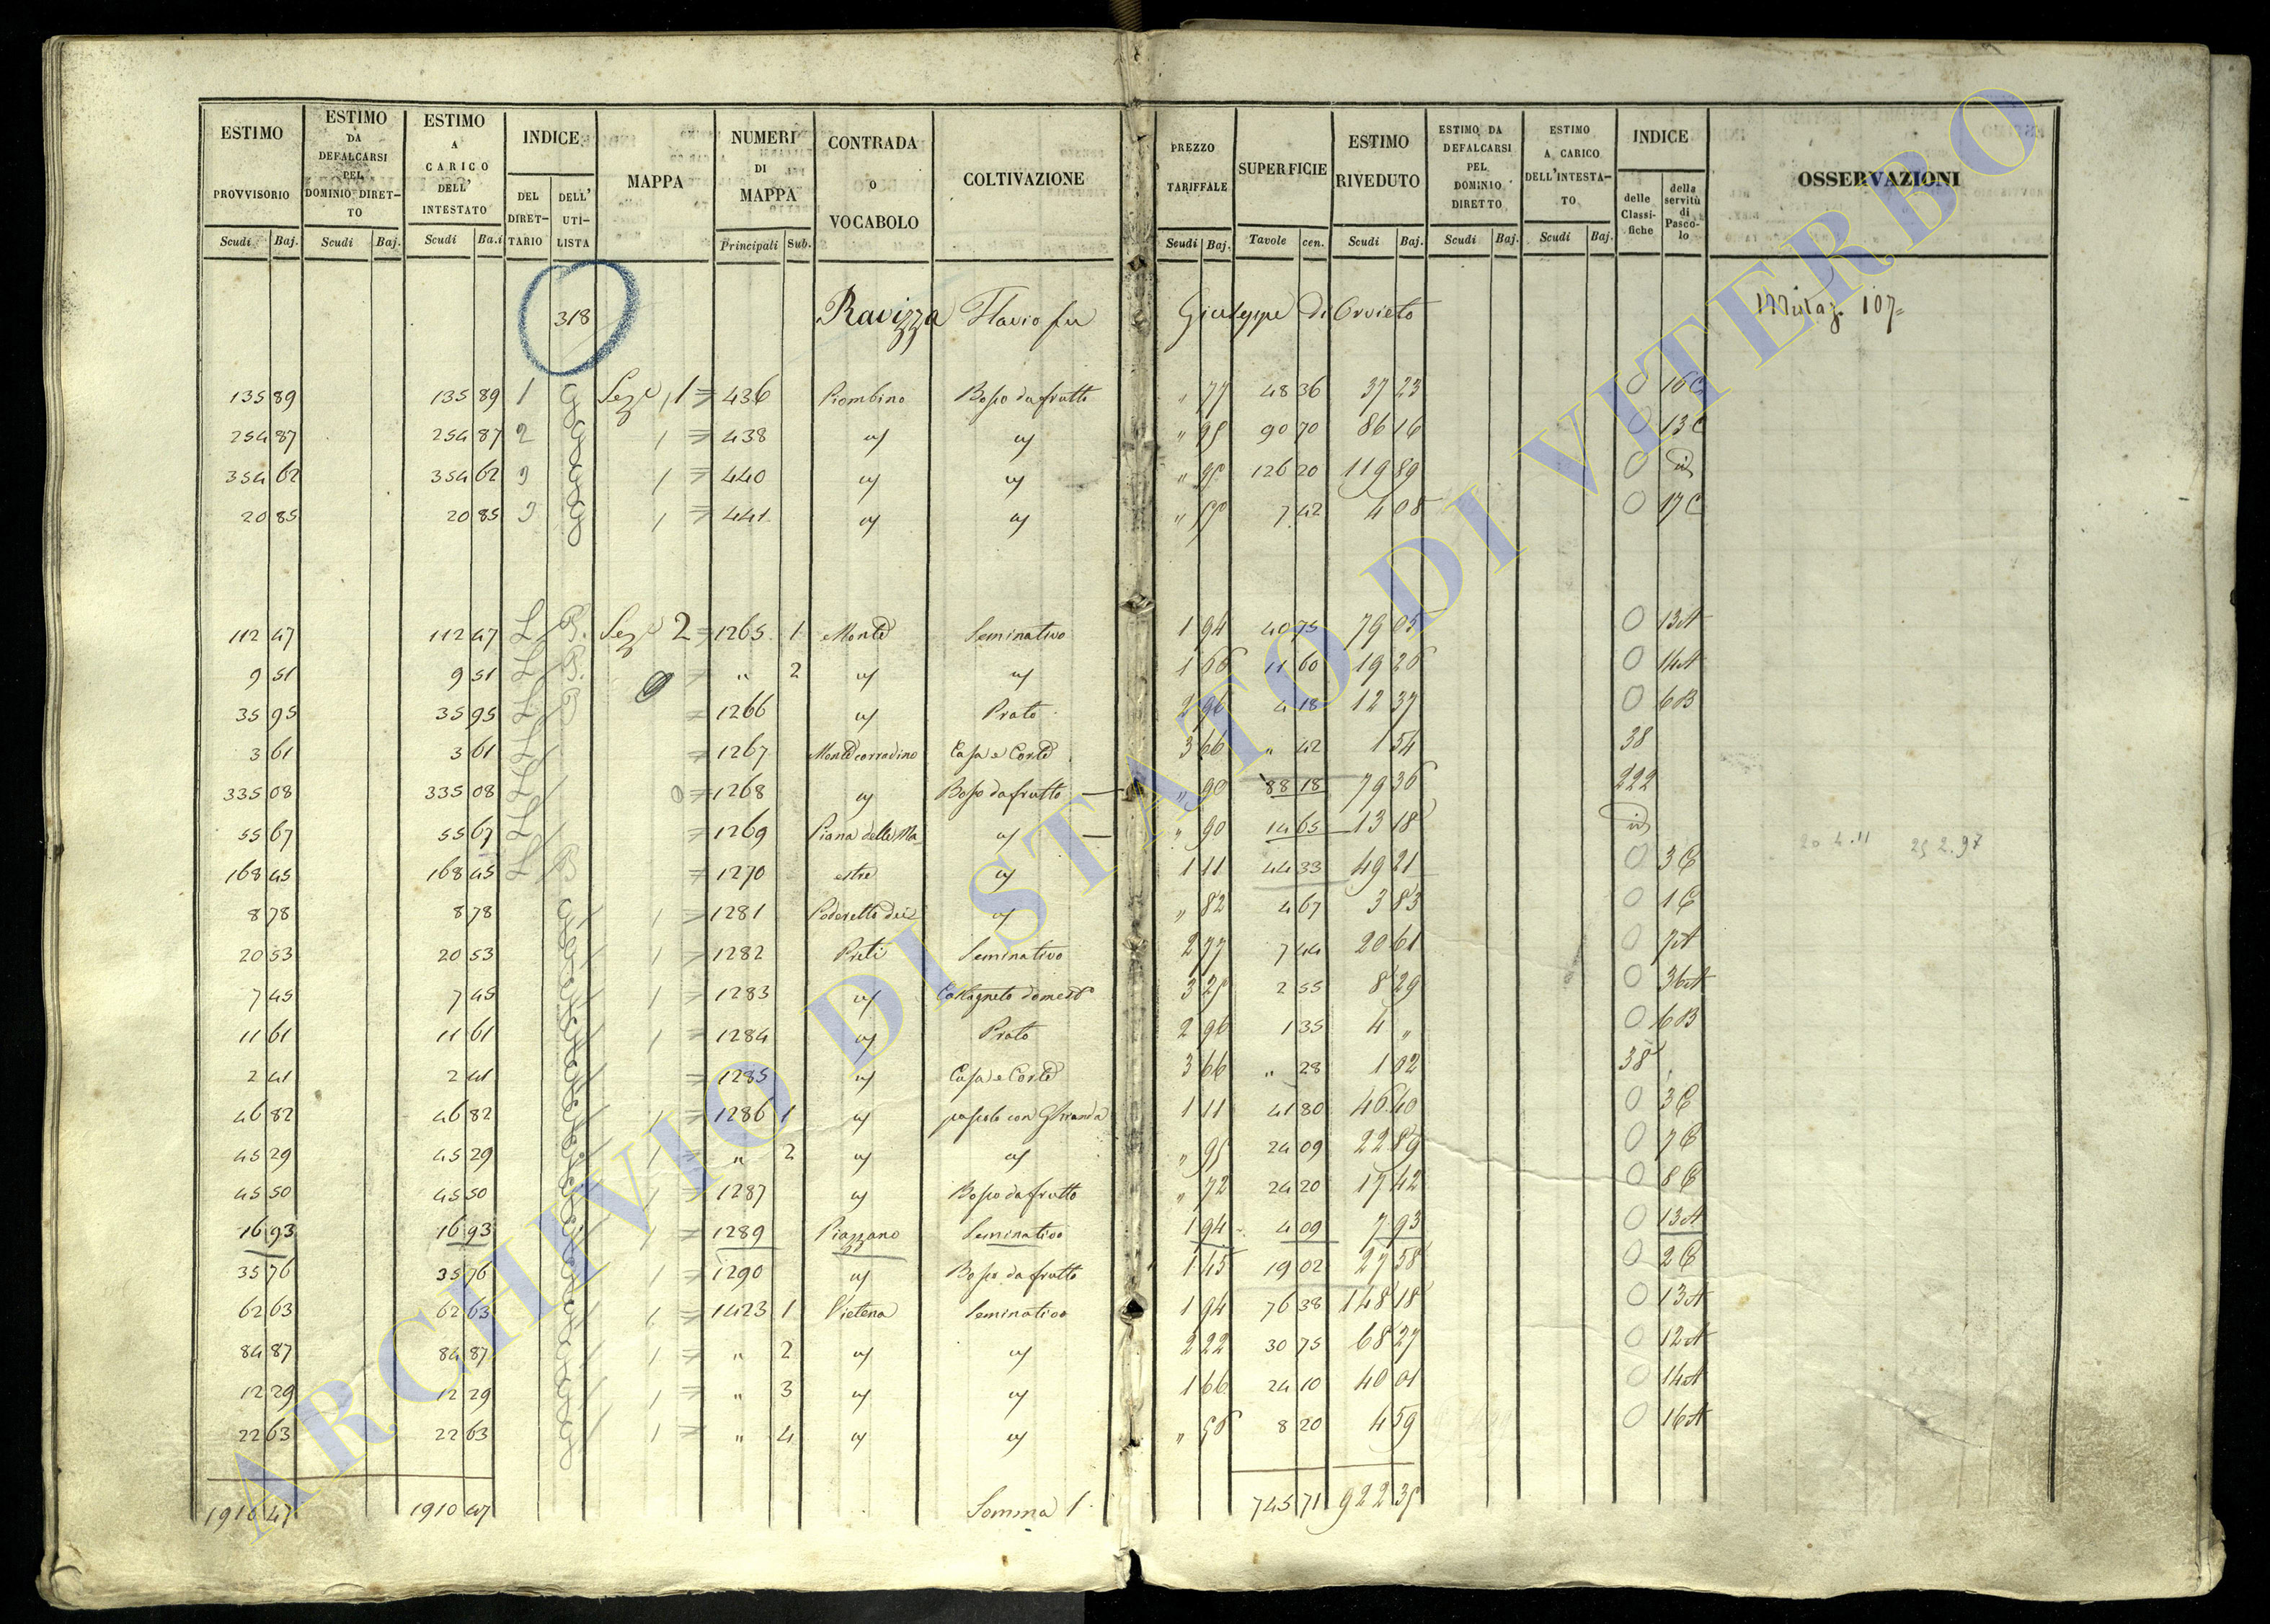 ESTIMO PROVVISORIO Scudi Baj. ESTIMO DA DEFALCARSI PEL DOMINIO DIRETTO Scudi Baj. ESTIMO A CARICO DELL' INTESTATO Scudi Ba.i INDICE DEL DIRETTARIO DELL' UTILISTA MAPPA NUMERI DI MAPPA Principali Sub. CONTRADA o VOCABOLO COLTIVAZIONE PREZZO TARIFFALE Scudi Baj. SUPERFICIE Tavole cen. ESTIMO RIVEDUTO Scudi Baj. ESTIMO DA DEFALCARSI PEL DOMINIO DIRETTO Scudi Baj. ESTIMO A CARICO DELL'INTESTATO Scudi Baj. INDICE delle Classifiche della servitù di Pascolo OSSERVAZIONI
318 Ravizza Flavio fu Giuseppe di Orvieto 107
135 89 135 89 1 G Sez. 1 = 436 Piombino Bosco da frutto " 77 48 36 37 23 0 16 C
254 87 254 87 2 G 1 = 438 " 95 90 70 86 16 0 13 C
354 62 354 62 3 G 1 = 440 " 95 126 20 119 89 0 id
20 85 20 85 3 G 1 = 441 " 7 42 4 08 0 17 C
112 47 112 47 L B. Sez. 2 = 1265 1 Monte Seminativo 1 94 40 75 79 05 0 13 A
9 51 9 51 L B. = " 2 1 66 11 60 19 26 0 14 A
35 95 35 95 L B = 1266 Prato 2 96 4 18 12 37 0 6 B
3 61 3 61 L = 1267 Monte corradino Casa e Corte 3 66 " 42 1 54 38
335 08 335 08 L 0 = 1268 Bosco da frutto " 90 88 18 79 36 222
55 67 55 67 L = 1269 Piana delle Ma " 90 14 65 13 18 id
168 45 168 45 L B = 1270 estre 1 11 44 33 49 21 0 3 C
8 78 8 78 G 1 = 1281 Poderetto dei " 82 4 67 3 83 0 1 C
20 53 20 53 G 1 = 1282 Preti Seminativo 2 77 7 44 20 61 0 7 A
7 45 7 45 G 1 = 1283 Castagneto domest 3 25 2 55 8 29 0 36 A
11 61 11 61 G 1 = 1284 Prato 2 96 1 35 4 " 0 6 B
2 41 2 41 G = 1285 Casa e Corte 3 66 " 28 1 02 38
46 82 46 82 G 1 = 1286 1 pascolo con Ghianda 1 11 41 80 46 40 0 3 C
45 29 45 29 G 1 = " 2 " 95 24 09 22 89 0 7 C
45 50 45 50 G 1 = 1287 Bosco da frutto " 72 24 20 17 42 0 8 C
16 93 16 93 G 1 = 1289 Piazzano Seminativo 1 94 4 09 7 93 0 13 A
35 76 35 76 G 1 = 1290 Bosco da frutto 1 45 19 02 27 58 0 2 C
62 63 62 63 G 1 = 1423 1 Vietena Seminativo 1 94 76 38 148 18 0 13 A
84 87 84 87 G 1 = " 2 2 22 30 75 68 27 0 12 A
12 29 12 29 G 1 = " 3 1 66 24 10 40 01 0 14 A
22 63 22 63 G 1 = " 4 " 56 8 20 4 59 0 16 A
1910 47 1910 47 Somma 1 745 71 922 35
ARCHIVIO DI STATO DI VITERBO